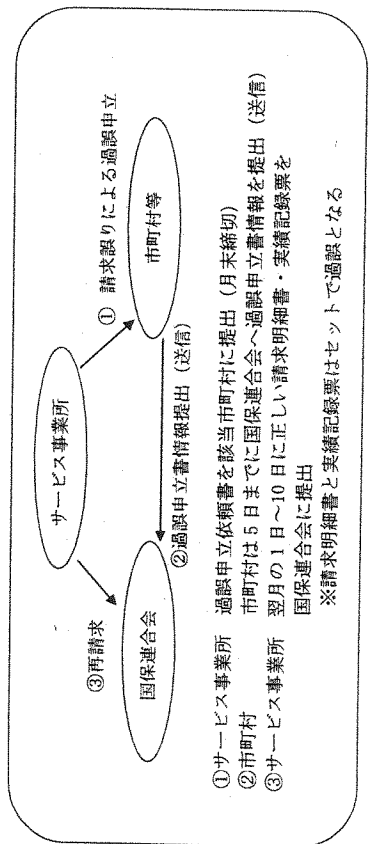 サービス事業所
① 請求誤りによる過誤申立
③再請求
市町村等
国保連合会
②過誤申立書情報提出（送信）
①サービス事業所 過誤申立依頼書を該当市町村に提出（月末締切）
②市町村 市町村は5日までに国保連合会へ過誤申立書情報を提出（送信）
③サービス事業所 翌月の1日～10日に正しい請求明細書・実績記録票を
国保連合会に提出
※請求明細書と実績記録票はセットで過誤となる